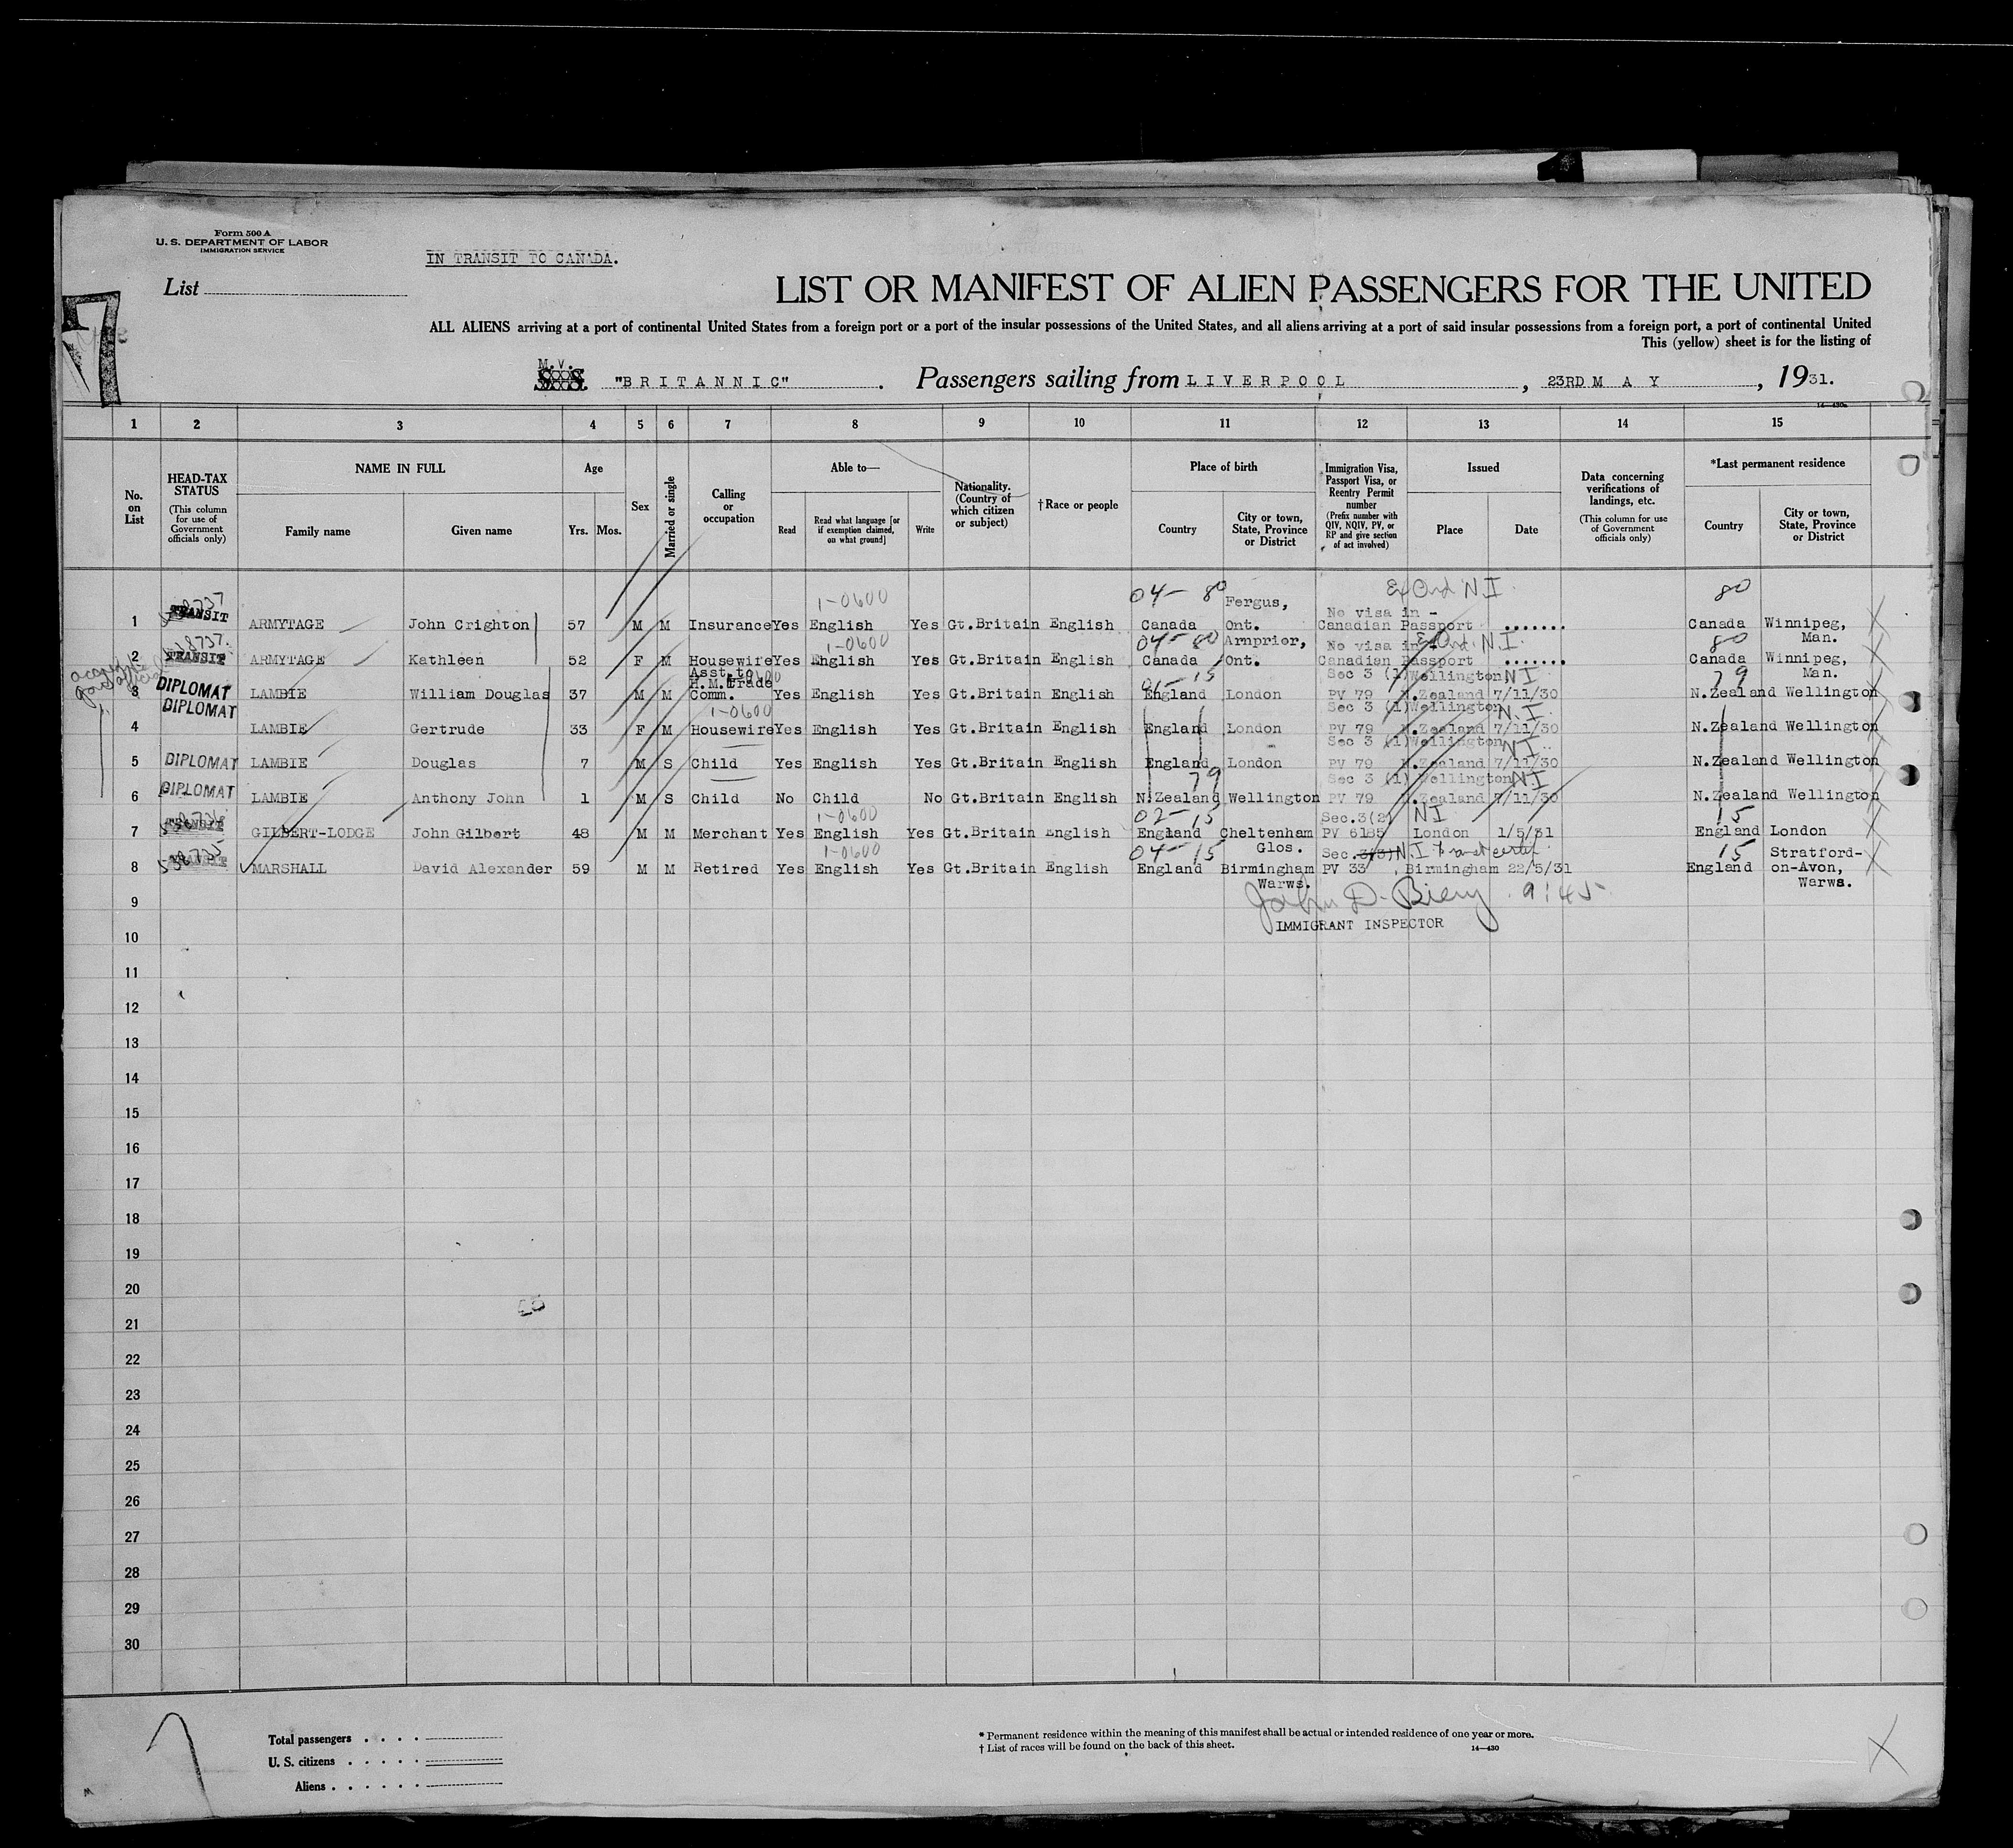 Form 500 A
U. S. DEPARTMENT OF LABOR
IMMIGRATION SERVICE
IN TRANSIT TO CANADA.
List
LIST OR MANIFEST OF ALIEN PASSENGERS FOR THE UNITED
ALL ALIENS arriving at a port of continental United States from a foreign port or a port of the insular possessions of the United States, and all aliens arriving at a port of said insular possessions from a foreign port, a port of continental United
This (yellow) sheet is for the listing of
M.V.
S. S. "BRITANNIC". Passengers sailing from LIVERPOOL, 23RD MAY, 1931.
14—430a
1 2 3 4 5 6 7 8 9 10 11 12 13 14 15
No. on List
HEAD-TAX STATUS
(This column for use of Government officials only)
NAME IN FULL
Family name Given name
Age
Yrs. Mos.
Sex
Married or single
Calling or occupation
Able to—
Read
Read what language [or if exemption claimed, on what ground]
Write
Nationality. (Country of which citizen or subject)
† Race or people
Place of birth
Country
City or town, State, Province or District
Immigration Visa, Passport Visa, or Reentry Permit number
(Prefix number with QIV, NQIV, PV, or RP and give section of act involved)
Issued
Place Date
Data concerning verifications of landings, etc.
(This column for use of Government officials only)
*Last permanent residence
Country
City or town, State, Province or District
1-0600 04-80 Fergus, N.I 80
No visa in -
1 TRANSIT ARMYTAGE John Crighton 57 M M Insurance Yes English Yes Gt.Britain English Canada Ont. Canadian Passport ....... Canada Winnipeg, Man.
1-0600 04-80 Arnprior, No visa in - N.I. 80
2 TRANSIT ARMYTAGE Kathleen 52 F M Housewife Yes English Yes Gt.Britain English Canada Ont. Canadian Passport ....... Canada Winnipeg, Man.
Asst. to H.M.Trade 01-15 Sec 3 (1) Wellington NI 79
3 DIPLOMAT LAMBIE William Douglas 37 M M Comm. Yes English Yes Gt.Britain English England London PV 79 N.Zealand 7/11/30 N.Zealand Wellington
DIPLOMAT 1-0600 Sec 3 (1) Wellington N.I.
4 LAMBIE Gertrude 33 F M Housewife Yes English Yes Gt.Britain English England London PV 79 N.Zealand 7/11/30 N.Zealand Wellington
Sec 3 (1) Wellington NI
5 DIPLOMAT LAMBIE Douglas 7 M S Child Yes English Yes Gt.Britain English England London PV 79 N.Zealand 7/11/30 N.Zealand Wellington
79 Sec 3 (1) Wellington NI
6 DIPLOMAT LAMBIE Anthony John 1 M S Child No Child No Gt.Britain English N.Zealand Wellington PV 79 N.Zealand 7/11/30 N.Zealand Wellington
1-0600 02-15 Sec.3(2) NI 15
7 TRANSIT GILBERT-LODGE John Gilbert 48 M M Merchant Yes English Yes Gt.Britain English England Cheltenham Glos. PV 6185 London 1/5/31 England London
1-0600 04-15 Sec.3(3) N.I Transit certif 15
8 TRANSIT MARSHALL David Alexander 59 M M Retired Yes English Yes Gt.Britain English England Birmingham Warws. PV 33 Birmingham 22/5/31 England Stratford-on-Avon, Warws.
9 John D. Biery 9:45
IMMIGRANT INSPECTOR
10
11
12
13
14
15
16
17
18
19
20
21
22
23
24
25
26
27
28
29
30
Total passengers
U. S. citizens
Aliens
* Permanent residence within the meaning of this manifest shall be actual or intended residence of one year or more.
† List of races will be found on the back of this sheet.
14—430